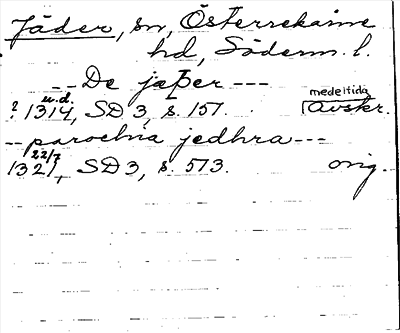 Jäder, sn, Österrekarne
hd, Söderm. l.
-- De jaþer ---
? 1314 u.d., SD 3, s. 151. medeltida avskr.
-- parochia jedhra ---
1321 22/7, SD 3, s. 573. orig.